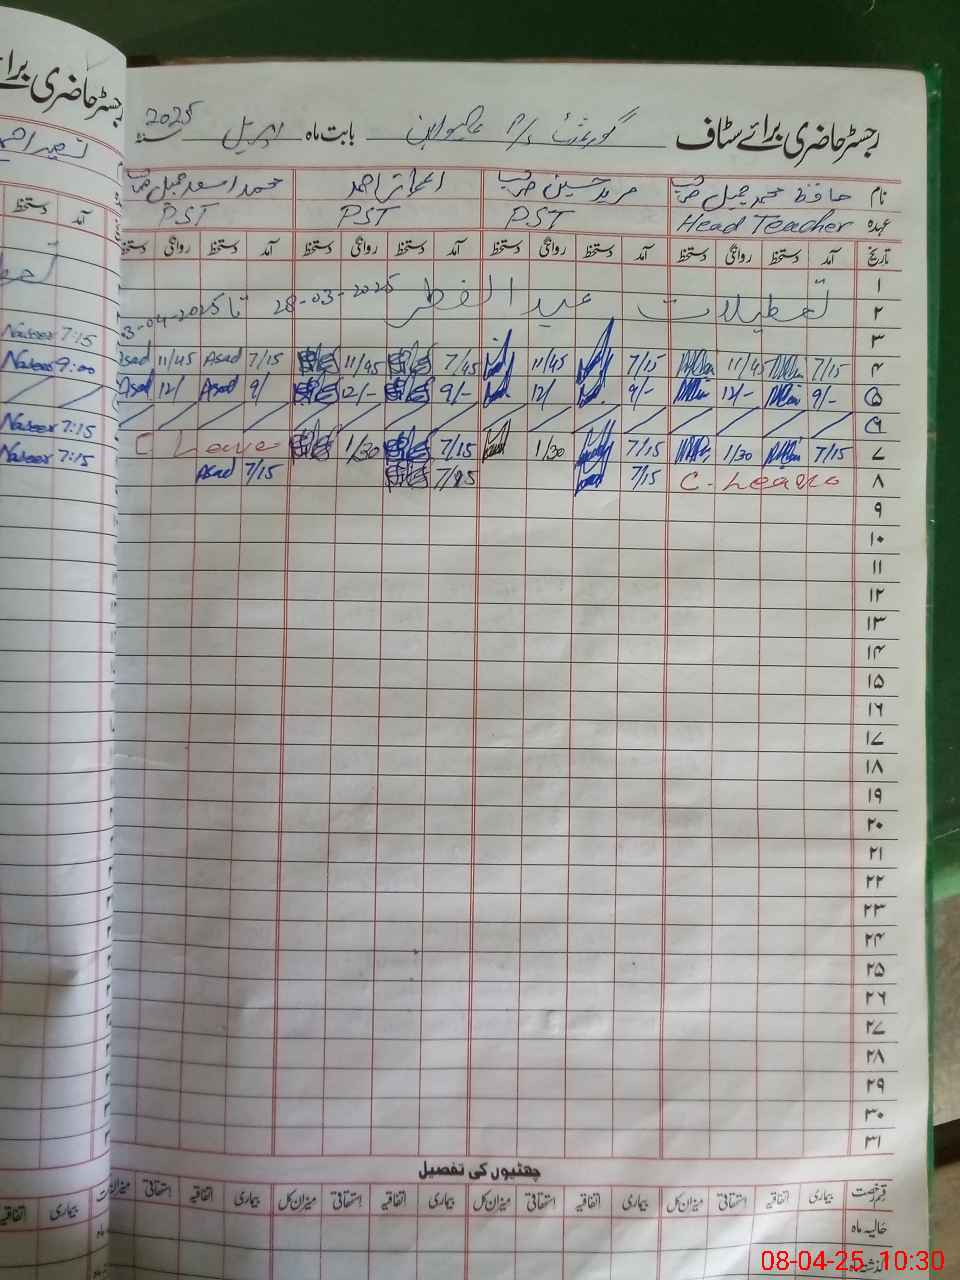 رجسٹر حاضری برائے سٹاف گورنمنٹ P/S بابت ماہ اپریل 2025
نام حافظ محمد جمیل صاحب مرید حسین صاحب احمد محمد اسعد جمیل صاحب
عہدہ Head Teacher PST PST PST
تاریخ آمد دستخط روانگی دستخط آمد دستخط روانگی دستخط آمد دستخط روانگی دستخط آمد دستخط روانگی دستخط
۱
۲ تعطیلات عید الفطر 28-03-2025 تا 3-04-2025
۳
۴ 7/15 11/45 7/15 11/45 7/45 11/45 7/15 Asad 11/45 Asad
۵ 9/- 12/- 9/- 12/ 9/- 12/- 9/ Asad 12/ Asad
۶
۷ 7/15 1/30 7/15 1/30 7/15 1/30 C Leave
۸ C. Leave 7/15 7/15 Asad
۹
۱۰
۱۱
۱۲
۱۳
۱۴
۱۵
۱۶
۱۷
۱۸
۱۹
۲۰
۲۱
۲۲
۲۳
۲۴
۲۵
۲۶
۲۷
۲۸
۲۹
۳۰
۳۱
چھٹیوں کی تفصیل
قسم رخصت بیماری اتفاقیہ استحقاقی میزان کل بیماری اتفاقیہ استحقاقی میزان کل بیماری اتفاقیہ استحقاقی میزان کل بیماری اتفاقیہ استحقاقی میزان
حالیہ ماہ
رجسٹر حاضری برائے
آمد دستخط
Naseer 7:15
Naseer 9:00
Naseer 7:15
Naseer 7:15
بیماری اتفاقیہ
08-04-25 10:30